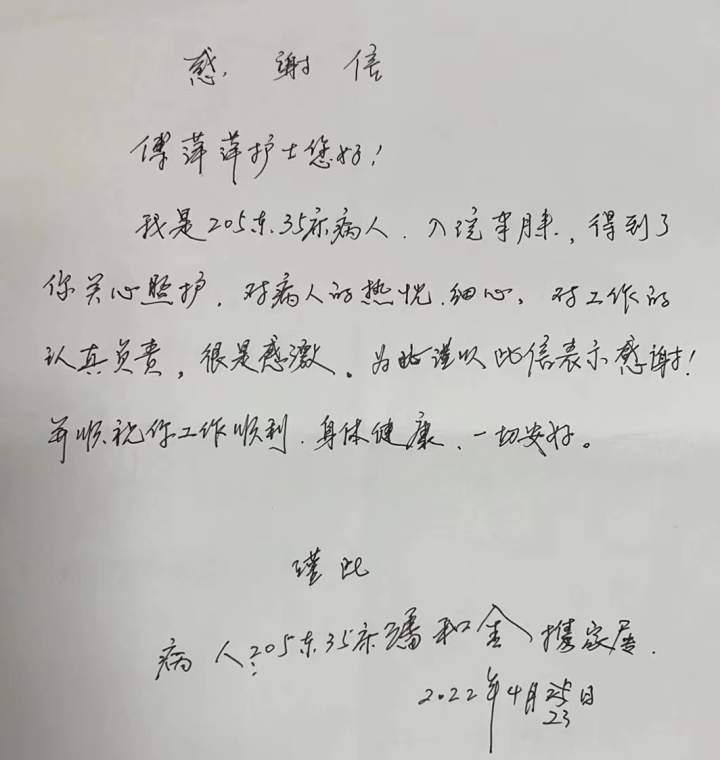 感谢信
傅萍萍护士您好！
我是205东.35床病人.入院半月来,得到了
你关心照护.对病人的热忱.细心,对工作的
认真负责,很是感激。为此谨以此信表示感谢!
并顺祝你工作顺利.身体健康、一切安好。
谨此
病人:205东35床潘和金携家属.
2022年4月23日